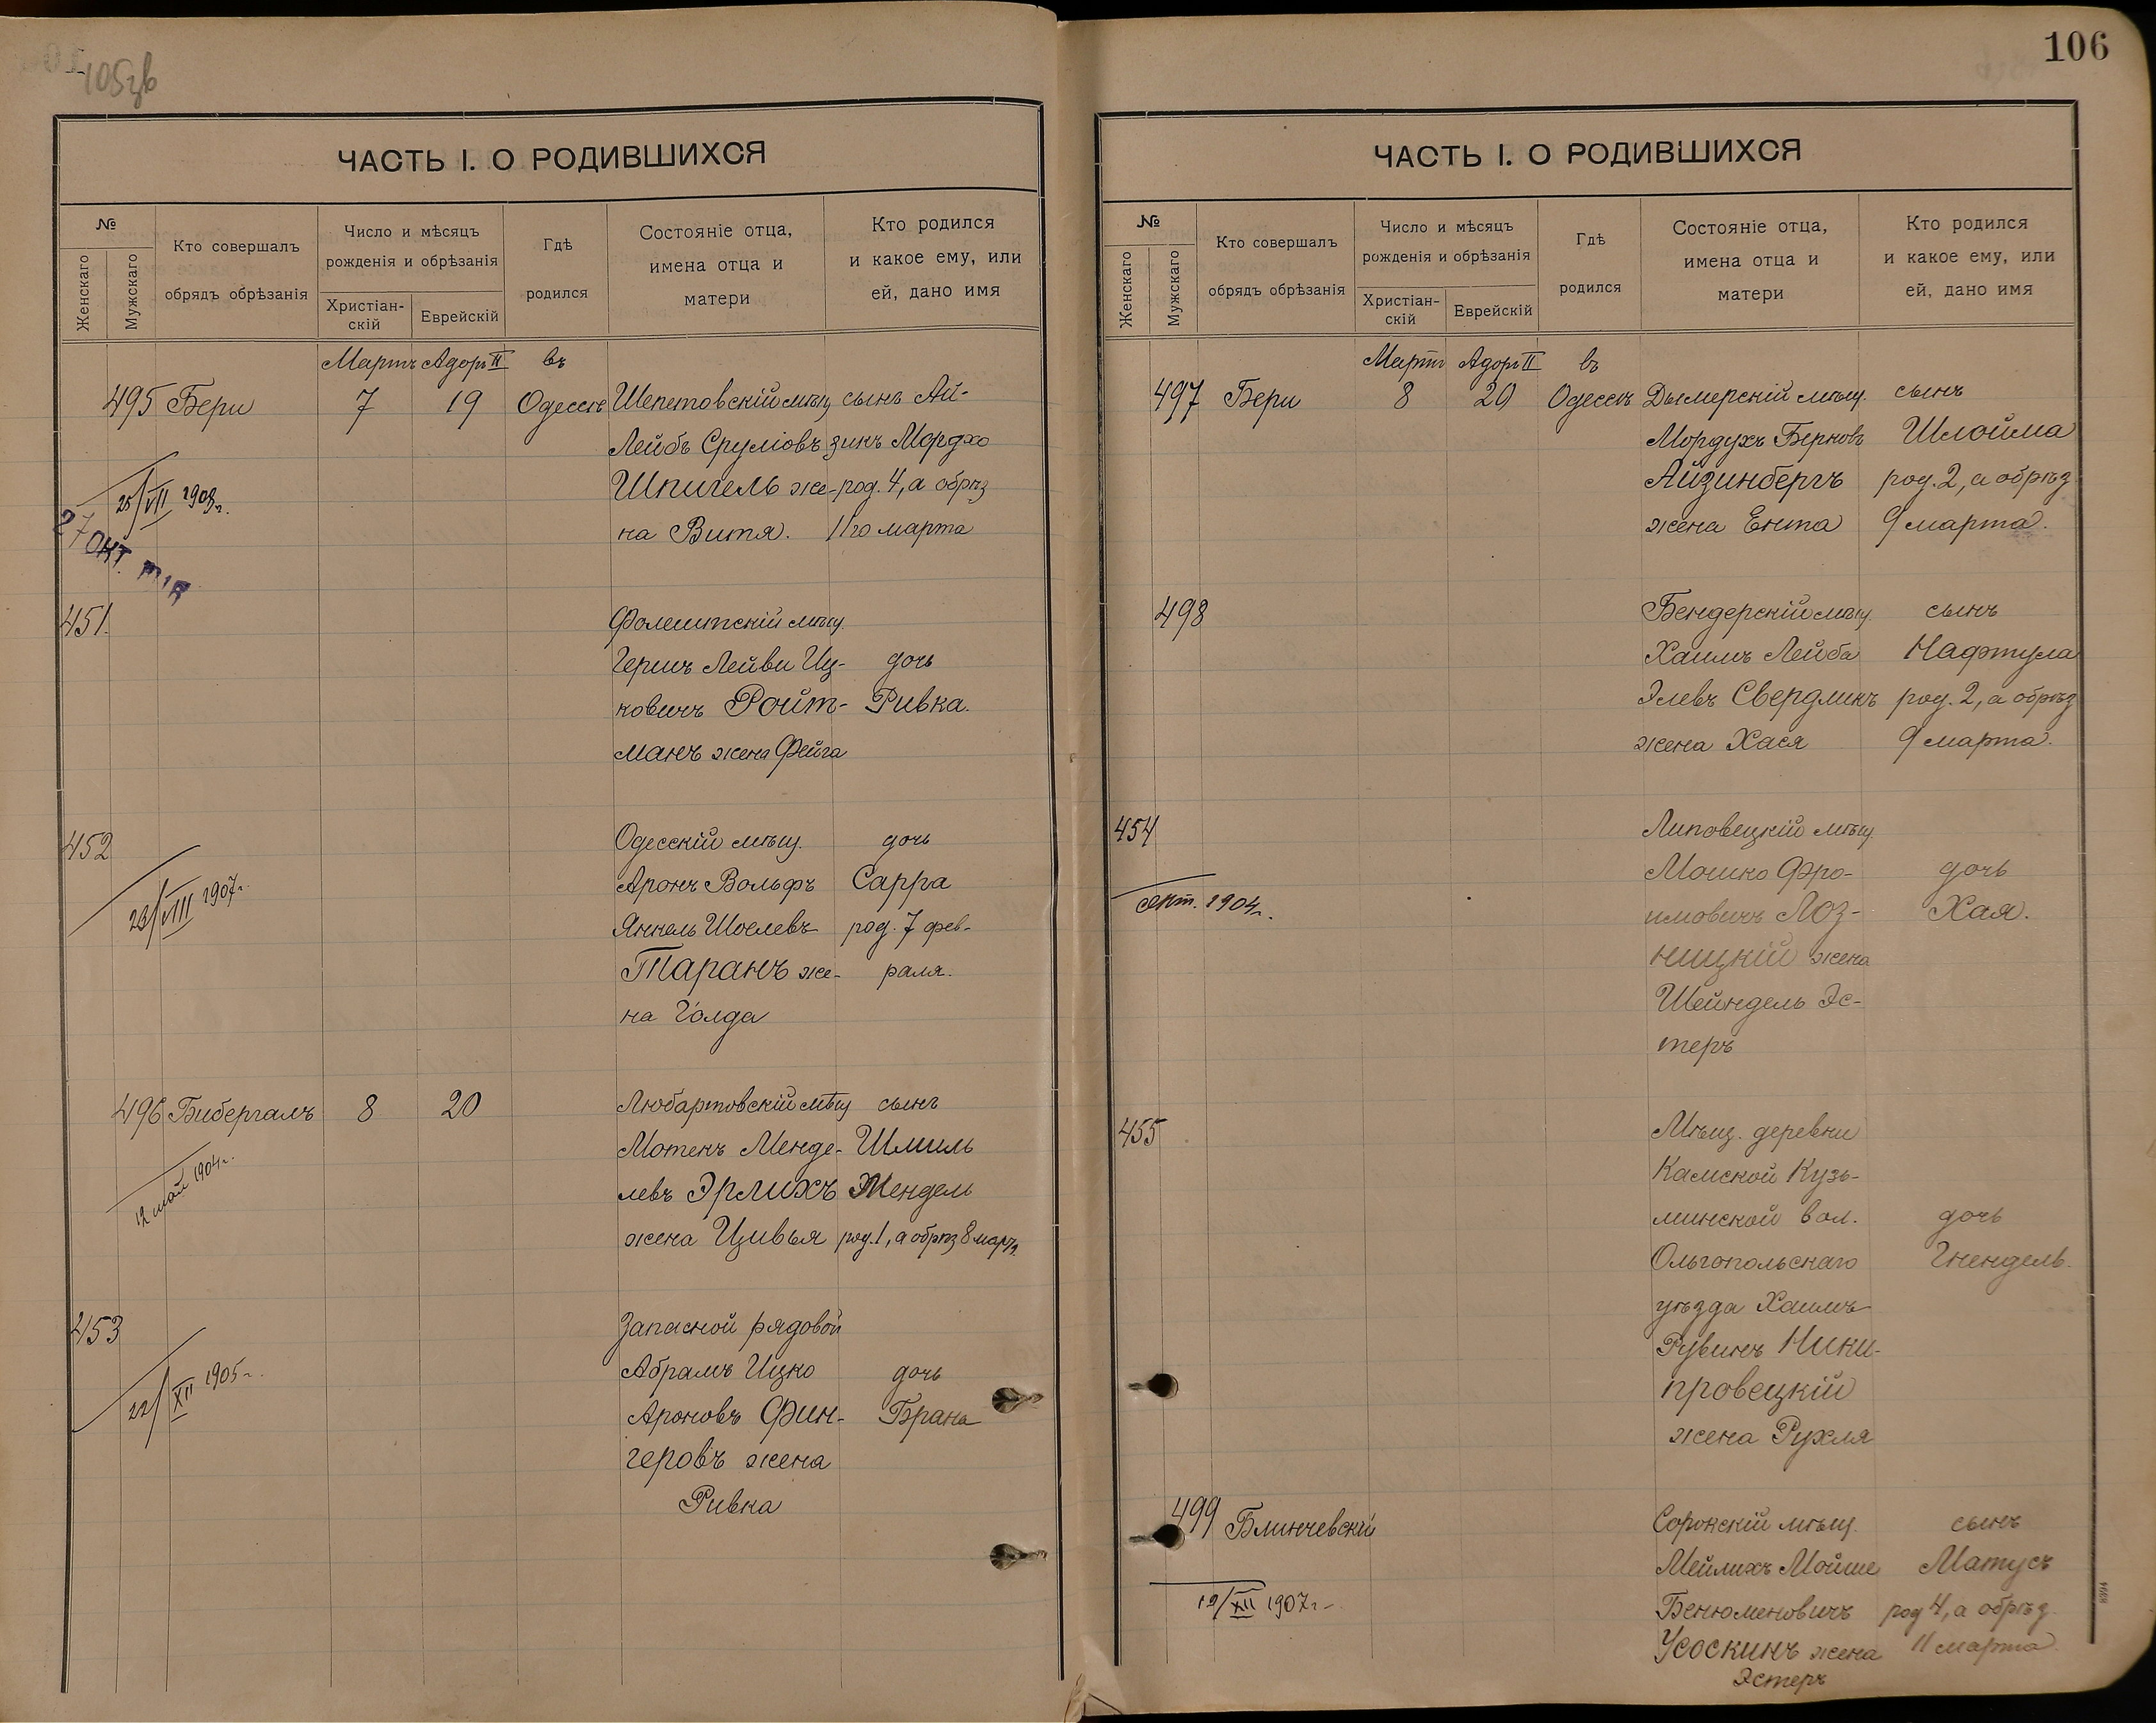 105 зв
ЧАСТЬ I. О РОДИВШИХСЯ
№
Женскаго
Мужскаго
Кто совершалъ
обрядъ обрѣзанія
Число и мѣсяцъ
рожденія и обрѣзанія
Христіан-
скій
Еврейскій
Гдѣ
родился
Состояніе отца,
имена отца и
матери
Кто родился
и какое ему, или
ей, дано имя
Мартъ Адоръ II въ
495 Бери 7 19 Одессѣ Шепетовскій мѣщ. сынъ Ай-
Лейбъ Сруліовъ зикъ Мордхо
Шпигель же- род. 4, а обрѣз
на Витя. 11го марта
25/VII 1908г.
27 ОКТ.
451. Фолештскій мѣщ.
Гершъ Лейви Иц- дочь
ковичъ Ройт- Ривка.
манъ жена Фейга
452 Одесскій мѣщ. дочь
Аронъ Вольфъ Сарра
Янкель Шоелевъ род. 7 фев-
Таранъ же- раля.
на Голда
23/VIII 1907г.
496 Бибергалъ 8 20 Любартовскій мѣщ сынъ
Мотенъ Менде- Шмиль
левъ Эрлихъ Мендель
жена Цивья род. 1, а обрѣз 8 марта
12 май 1904г.
453 Запасной рядовой
Абрамъ Ицко дочь
Ароновъ Фин- Брана
геровъ жена
Ривка
22/XII 1905г.
106
ЧАСТЬ I. О РОДИВШИХСЯ
№
Женскаго
Мужскаго
Кто совершалъ
обрядъ обрѣзанія
Число и мѣсяцъ
рожденія и обрѣзанія
Христіан-
скій
Еврейскій
Гдѣ
родился
Состояніе отца,
имена отца и
матери
Кто родился
и какое ему, или
ей, дано имя
Мартъ Адоръ II въ
497 Бери 8 20 Одессѣ Дымерскій мѣщ. сынъ
Мордухъ Берковъ Шлойма
Айзинбергъ род. 2, а обрѣз
жена Ента 9 марта.
498 Бендерскій мѣщ. сынъ
Хаимъ Лейба Нафтула
Элевъ Свердликъ род. 2, а обрѣз
жена Хася 9 марта.
454 Липовецкій мѣщ.
Мошко Фро- дочь
имовичъ Лоз- Хая.
ницкій жена
Шейндель Эс-
теръ
сент. 1904г.
455 Мѣщ. деревни
Камской Кузь-
минской вол. дочь
Ольгопольскаго Гнендель.
уѣзда Хаимъ
Рувинъ Ники-
провецкій
жена Рухля
499 Блинчевскій Сорокскій мѣщ. сынъ
Мейлихъ Мойше Матусъ
Бенюменовичъ род 4, а обрѣз.
Усоскинъ жена 11 марта
Эстеръ
12/XII 1907г.